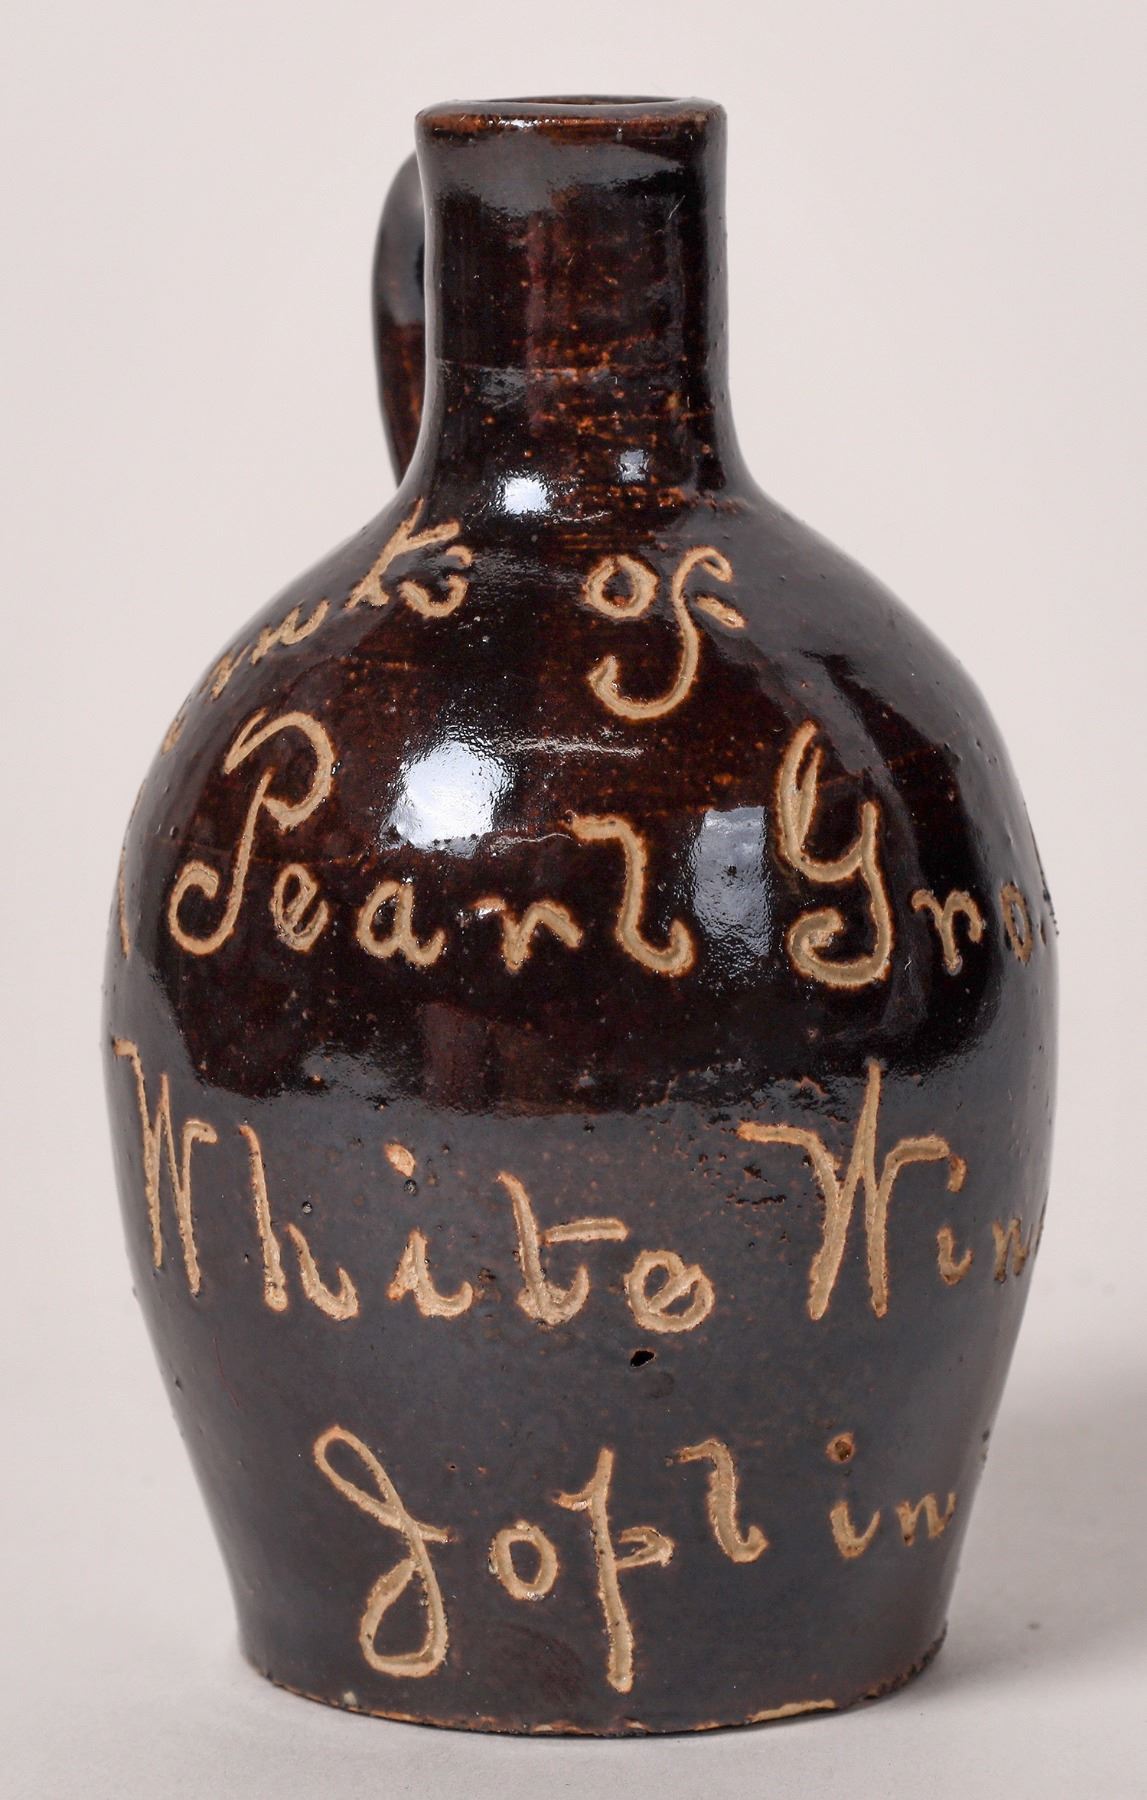 ments of
Pearl Gro
White Win
Joplin